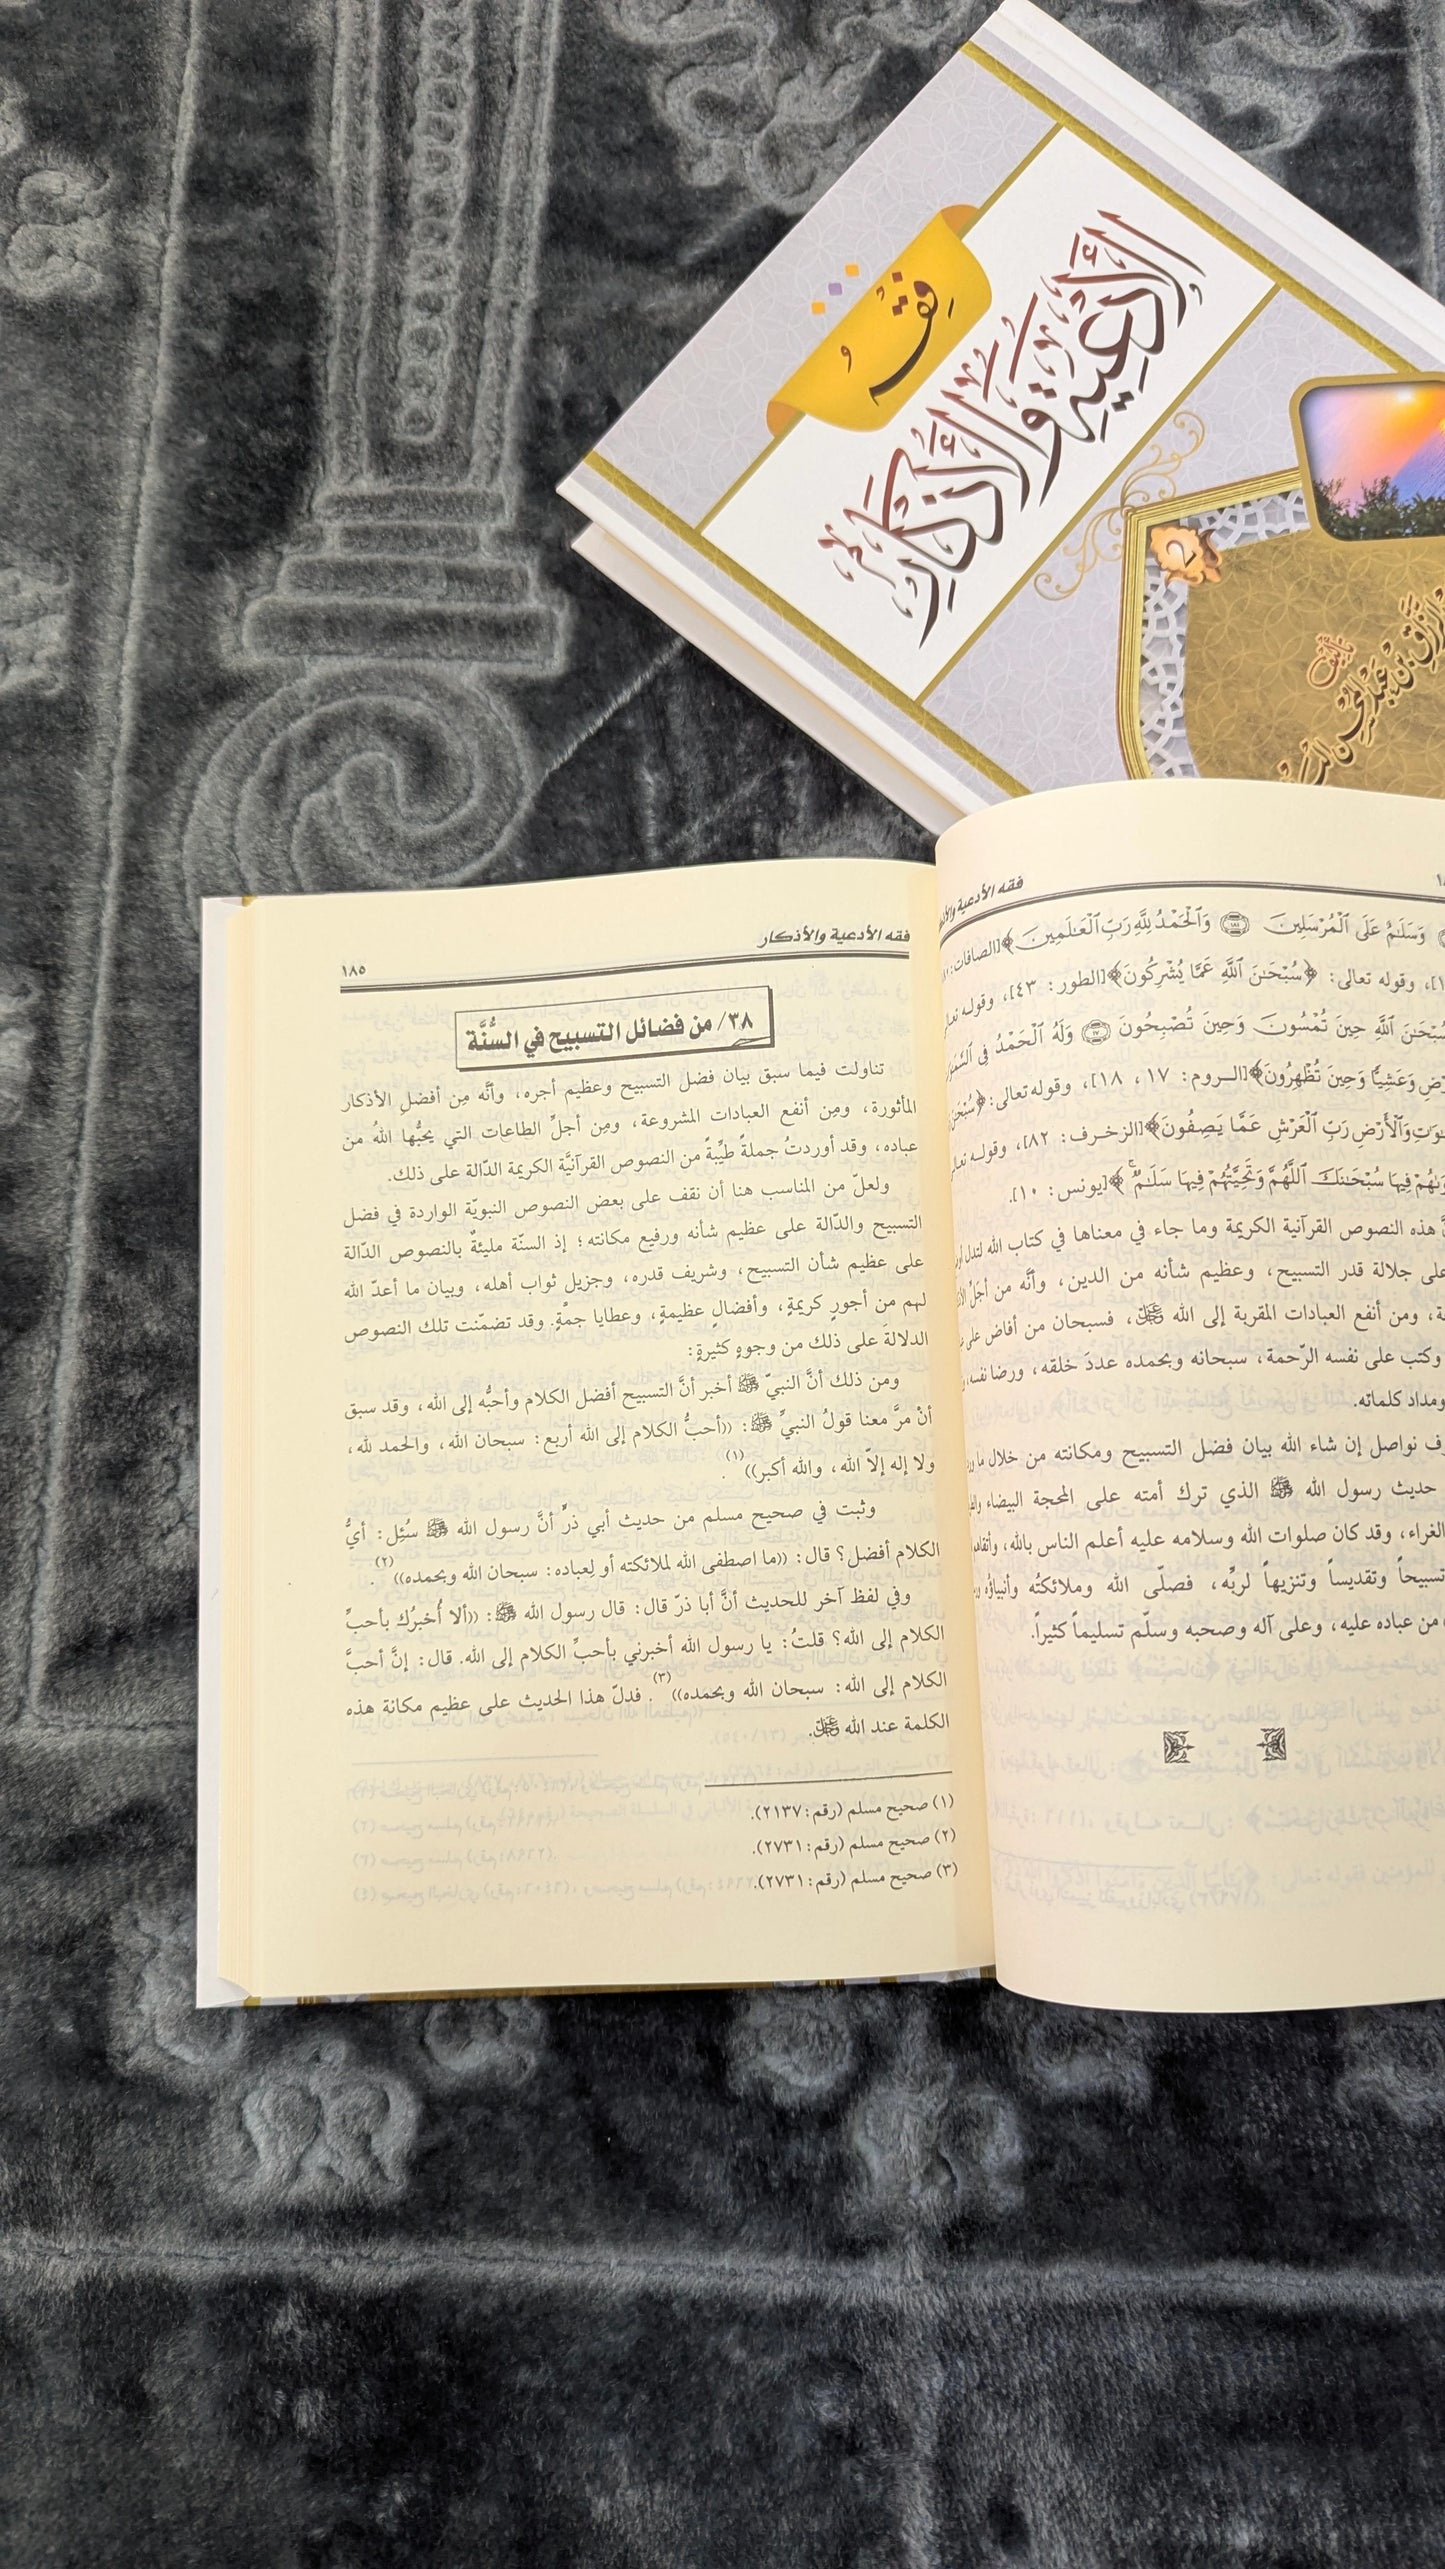 فِقْهُ
الأَدْعِيَةِ وَالأَذْكَارِ
2
تأليف
الرَّزَّاقِ بْنِ عَبْدِ المُحْسِنِ
فقه الأدعية والأذكار
وَسَلَٰمٌ عَلَى ٱلْمُرْسَلِينَ ۝ وَٱلْحَمْدُ لِلَّهِ رَبِّ ٱلْعَٰلَمِينَ﴾[الصافات:
وقوله تعالى: ﴿سُبْحَٰنَ ٱللَّهِ عَمَّا يُشْرِكُونَ﴾[الطور: ٤٣]، وقوله
ٱللَّهِ حِينَ تُمْسُونَ وَحِينَ تُصْبِحُونَ ۝ وَلَهُ ٱلْحَمْدُ فِى
وَعَشِيًّا وَحِينَ تُظْهِرُونَ﴾[الـروم: ١٧، ١٨]، وقوله تعالى:
وَٱلْأَرْضِ رَبِّ ٱلْعَرْشِ عَمَّا يَصِفُونَ﴾[الزخـرف: ٨٢]، وقولـه
فِيهَا سُبْحَٰنَكَ ٱللَّهُمَّ وَتَحِيَّتُهُمْ فِيهَا سَلَٰمٌ ۚ﴾[يونس: ١٠].
هذه النصوص القرآنية الكريمة وما جاء في معناها في كتاب الله لتدل
على جلالة قدر التسبيح، وعظيم شأنه من الدين، وأنَّه من أجَلِّ
ومن أنفع العبادات المقربة إلى الله ﷿، فسبحان من أفاض على
وكتب على نفسه الرّحمة، سبحانه وبحمده عددَ خلقه، ورضا نفسه،
ومداد كلماته.
نواصل إن شاء الله بيان فضل التسبيح ومكانته من خلال ما
حديث رسول الله ﷺ الذي ترك أمته على المحجة البيضاء
الغراء، وقد كان صلوات الله وسلامه عليه أعلم الناس بالله،
تسبيحاً وتقديساً وتنزيهاً لربِّه، فصلّى الله وملائكتُه وأنبياؤُه
من عباده عليه، وعلى آله وصحبه وسلّم تسليماً كثيراً.
فقه الأدعية والأذكار
١٨٥
٣٨/ من فضائل التسبيح في السُّنَّة
تناولت فيما سبق بيان فضل التسبيح وعظيم أجره، وأنَّه مِن أفضلِ الأذكار
المأثورة، ومِن أنفع العبادات المشروعة، ومِن أجلِّ الطاعات التي يحبُّها اللهُ من
عباده، وقد أوردتُ جملةً طيِّبةً من النصوص القرآنيَّة الكريمة الدّالة على ذلك.
ولعلّ من المناسب هنا أن نقف على بعض النصوص النبويّة الواردة في فضل
التسبيح والدّالة على عظيم شأنه ورفيع مكانته؛ إذ السنّة مليئةٌ بالنصوص الدّالة
على عظيم شأن التسبيح، وشريف قدره، وجزيل ثواب أهله، وبيان ما أعدّ الله
لهم من أجورٍ كريمةٍ، وأفضالٍ عظيمةٍ، وعطايا جمَّةٍ. وقد تضمّنت تلك النصوص
الدلالةَ على ذلك من وجوهٍ كثيرةٍ:
ومن ذلك أنَّ النبيّ ﷺ أخبر أنَّ التسبيح أفضل الكلام وأحبُّه إلى الله، وقد سبق
أنْ مرَّ معنا قولُ النبيِّ ﷺ: ((أحبُّ الكلام إلى الله أربع: سبحان الله، والحمد لله،
ولا إله إلاّ الله، والله أكبر))(١).
وثبت في صحيح مسلم من حديث أبي ذرٍّ أنَّ رسول الله ﷺ سُئِل: أيُّ
الكلام أفضل؟ قال: ((ما اصطفى الله لملائكته أو لِعباده: سبحان الله وبحمده))(٢).
وفي لفظ آخر للحديث أنَّ أبا ذرّ قال: قال رسول الله ﷺ: ((ألا أُخبرُك بأحبِّ
الكلام إلى الله؟ قلتُ: يا رسول الله أخبرني بأحبِّ الكلام إلى الله. قال: إنَّ أحبَّ
الكلام إلى الله: سبحان الله وبحمده))(٣). فدلّ هذا الحديث على عظيم مكانة هذه
الكلمة عند الله ﷿.
(١) صحيح مسلم (رقم: ٢١٣٧).
(٢) صحيح مسلم (رقم: ٢٧٣١).
(٣) صحيح مسلم (رقم: ٢٧٣١).